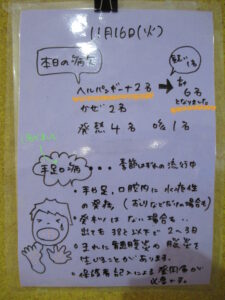 11月16日(火)
本日の病欠
ヘルパンギーナ2名
続いて1名
計6名
となりました
かぜ2名
発熱4名 咳1名
手足口病・・・季節はずれの流行中
・手や足、口腔内に水疱性
の発疹 (おしりなどだけの場合も)
・発熱はない場合も..
出ても38度以下で2〜3日
・まれに髄膜炎や脳炎を
生じることがあります。
・保護者記入による登園届が
必要です。